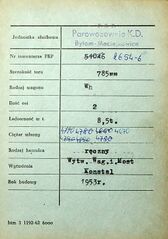 P. K. P.
Jednostka służbowa Parowozownia K.D.
Bytom-Maciejkowice
Nr inwentarza PKP 8654-6
Szerokość toru 785mm
Rodzaj wagonu Wh
Ilość osi 2
Ładowność w t. 8,5t.
4780
Ciężar własny
Rodzaj hamulca ręczny
Wytwórnia Wytw.Wag.i.Most
Konstal
Rok budowy 1953r.